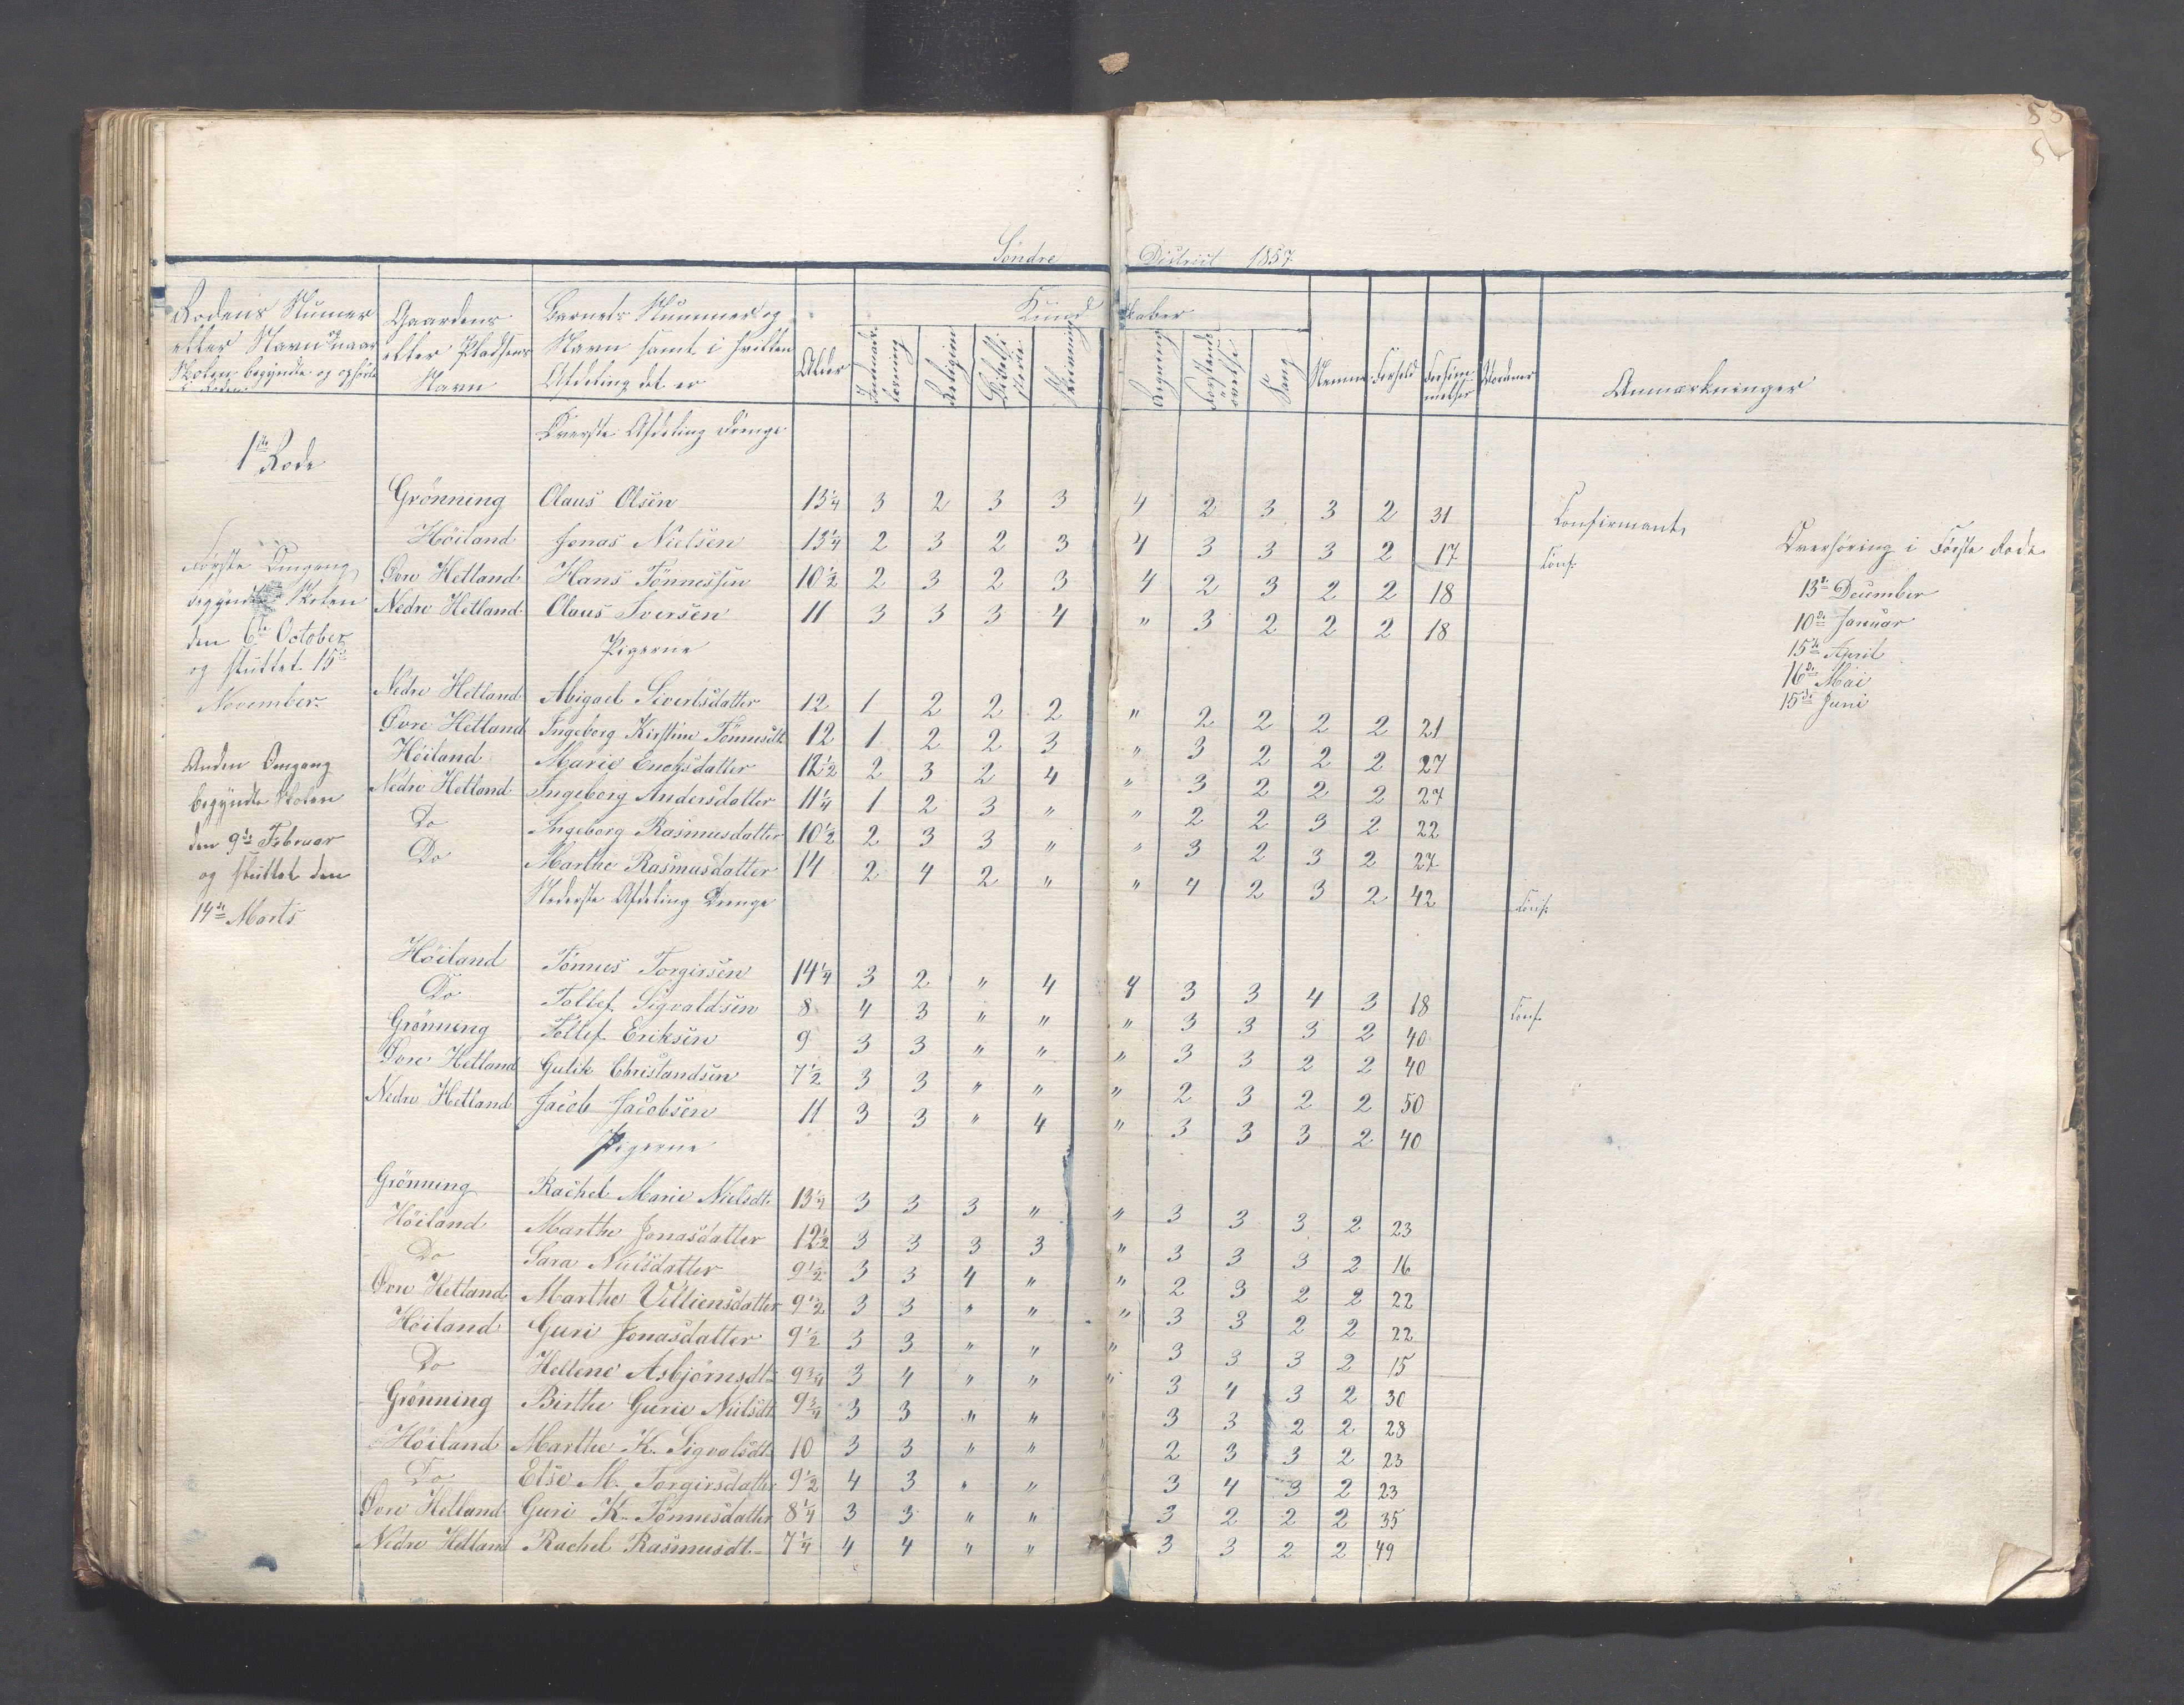 Søndre District 1857.
Rodens Numer eller Navn og naar Skolen begyndte og ophørte
Gaardens eller Pladsens Navn
Barnets Nummer og Navn samt i hvilken Afdeling det er
Alder
Kundskaber
Religion
Sang
Nemme
Forhold
Forsømmelser
Anmærkninger
1ste Rode
Øverste Afdeling Drenge
Grönning Olaus Olsen 13 1/4 3 2 3 3 4 2 3 3 2 31 Confirmant
Höiland Jonas Nielsen 13 1/4 2 3 2 3 4 3 3 3 2 17 Conf.
Øvre Hetland Hans Tönnessen 10 1/2 2 3 2 3 4 2 3 2 2 18
Nedre Hetland Olaus Iversen 11 3 3 3 4 " 3 2 2 2 18
Pigerne
Nedre Hetland Abigael Sivertsdatter 12 1 2 2 2 " 2 2 2 2 21
Øvre Hetland Ingeborg Kirstine Tönnesdt 12 1 2 2 3 " 3 2 2 2 27
Höiland Marie Enoksdatter 12 1/2 2 3 2 4 " 3 2 2 2 27
Nedre Hetland Ingeborg Andersdatter 11 1/4 1 2 3 " " 2 2 3 2 22
Do Ingeborg Rasmusdatter 10 1/2 2 3 3 " " 3 2 3 2 27
Do Marthe Rasmusdatter 14 2 4 2 " " 4 2 3 2 42 Conf.
Nederste Afdeling Drenge
Höiland Tönnes Torgirsen 14 1/4 3 2 " 4 4 3 3 4 3 18 Conf.
Do Tollef Sigvaldsen 8 4 3 " " " 3 3 3 2 40
Grönning Tollef Eriksen 9 3 3 " " " 3 3 2 2 40
Øvre Hetland Gulik Christiandsen 7 1/2 3 3 " " " 2 3 2 2 50
Nedre Hetland Jacob Jacobsen 11 3 3 " 4 " 3 3 3 2 40
Pigerne
Grönning Rachel Marie Nielsdt. 13 1/4 3 3 3 " " 3 3 3 2 23
Höiland Marthe Jonasdatter 12 1/2 3 3 3 3 " 3 3 3 2 16
Do Sara Nielsdatter 9 1/2 3 3 4 " " 2 3 2 2 22
Øvre Hetland Marthe Villiensdatter 9 1/2 3 3 " " " 3 3 2 2 22
Höiland Guri Jonasdatter 9 1/2 3 3 " " " 3 3 3 2 15
Do Hellene Asbjörnsdt 9 3/4 3 4 " " " 3 4 3 2 30
Grönning Birthe Gurie Nielsdt 9 3/4 3 3 " " " 3 3 2 2 28
Höiland Marthe K. Sigvalsdt 10 3 3 " " " 2 3 3 2 23
Do Else M. Torgirsdatter 9 1/2 4 3 " " 3 4 3 2 23
Øvre Hetland Guri K. Tönnesdatter 8 1/4 3 3 " " 3 2 2 2 35
Nedre Hetland Rachel Rasmusdt. 7 1/4 4 4 " " 3 3 2 2 49
Første Omgang
begyndte Skolen
den 6te October
og sluttet 15de
November.
Anden Omgang
begyndte Skolen
den 9de Februar
og sluttet den
14de Marts
Overhøring i Første Rode
13de December
10de Januar
15de April
16de Mai
15de Juni